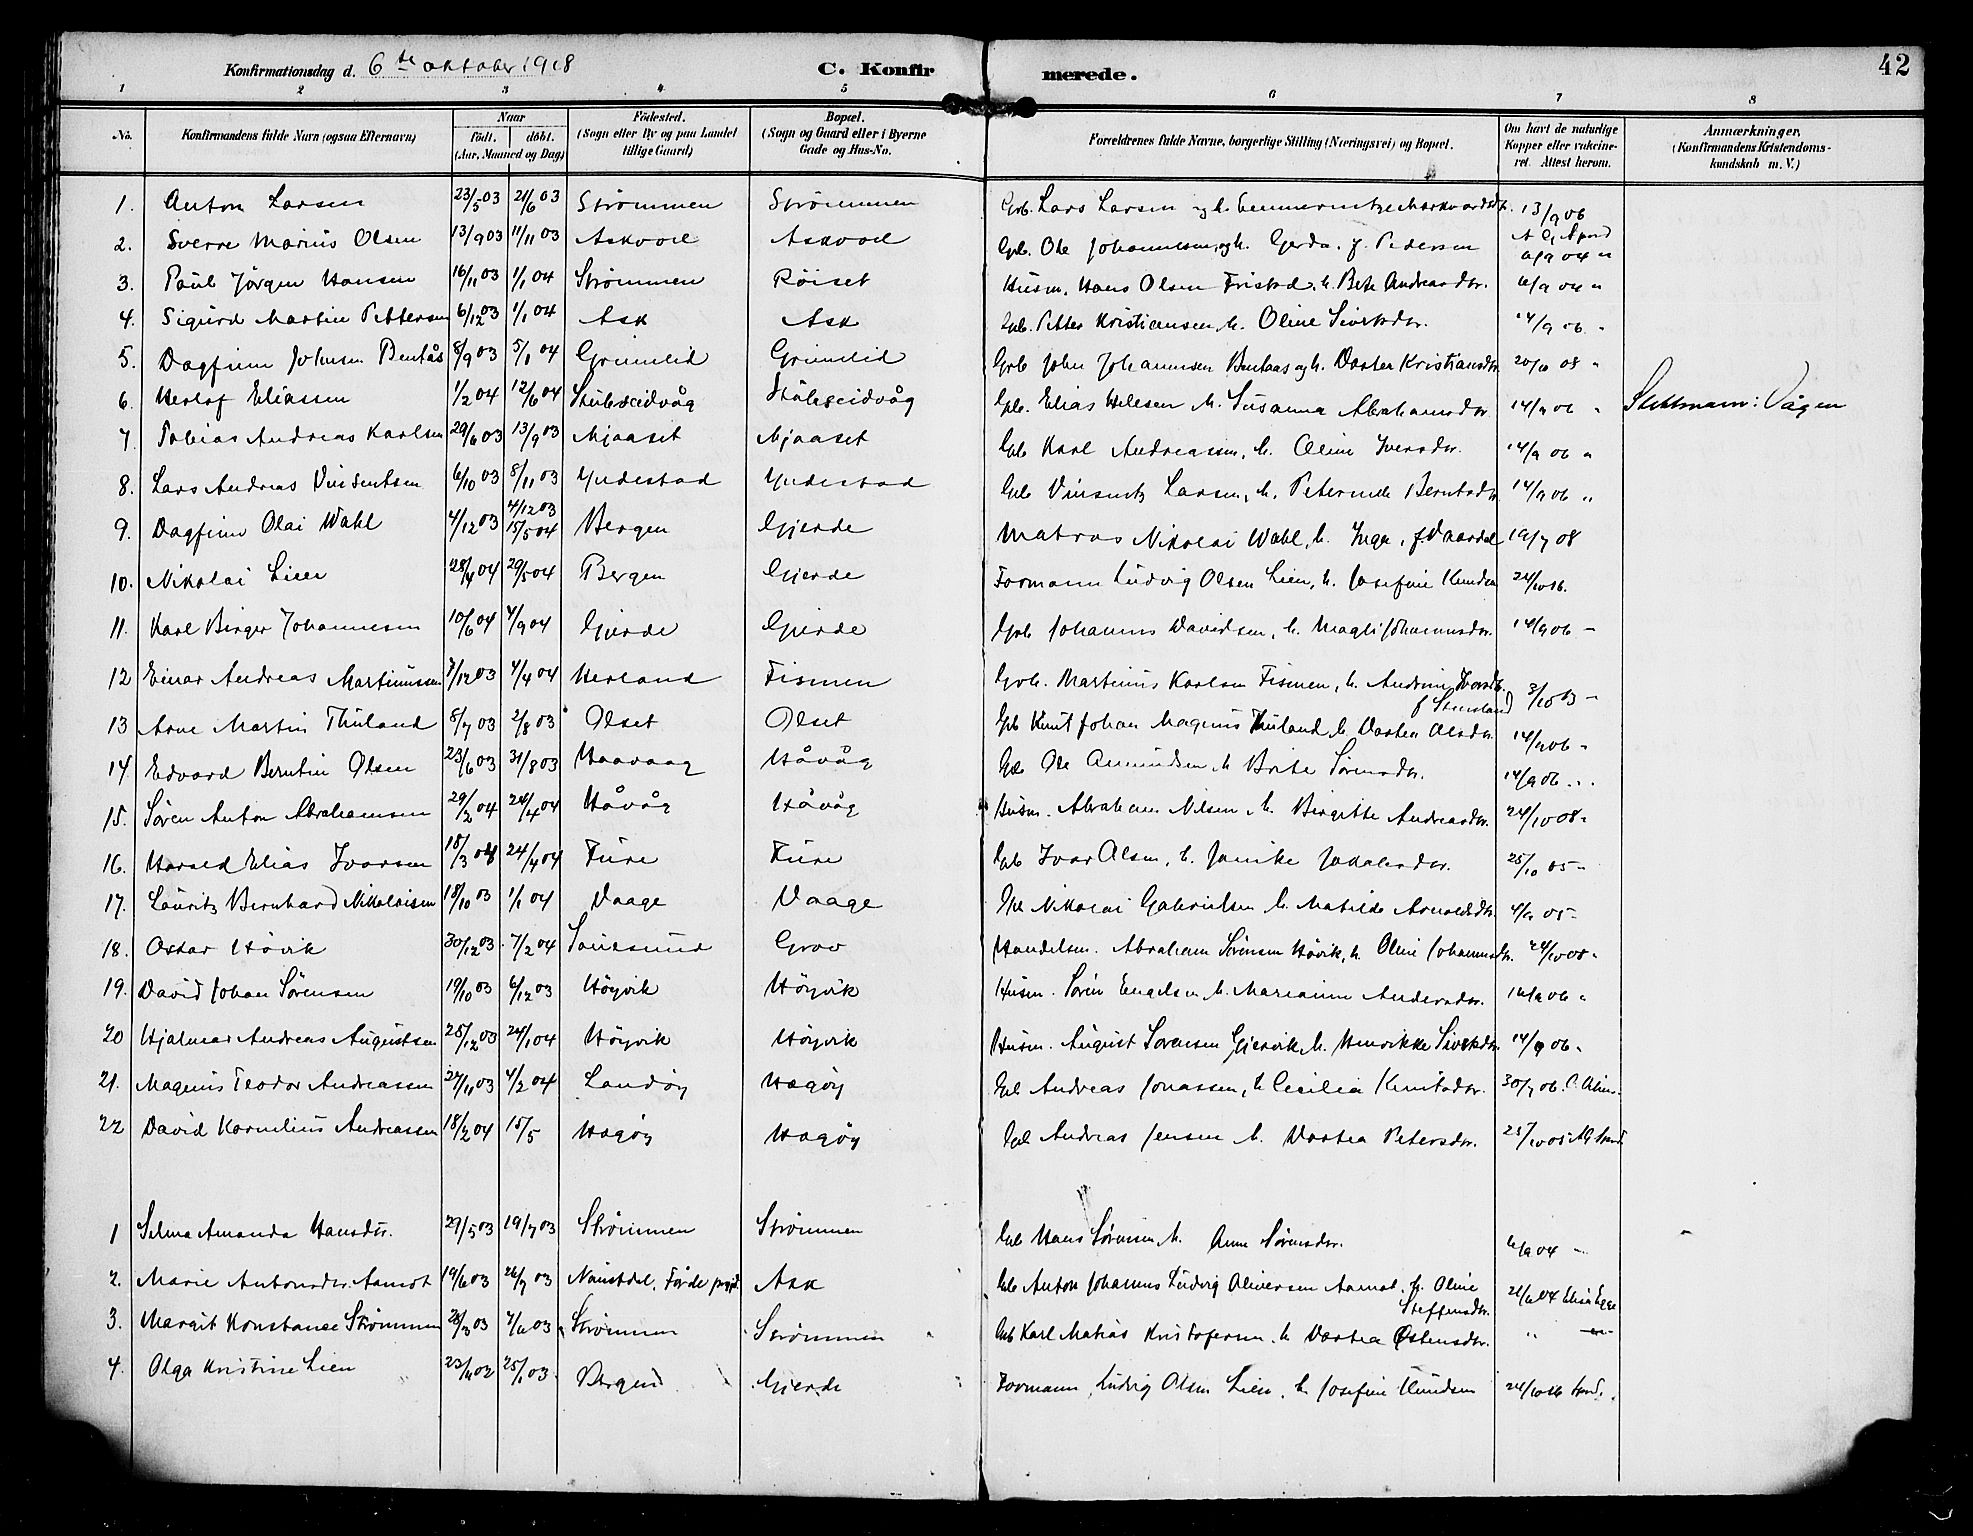 Konfirmationsdag d. 6te oktober 1918 C. Konfirmerede. 42
1 2 3 4 5 6 7 8
No. Konfirmandens fulde Navn (ogsaa Efternavn) Naar født. døbt. (Aar, Maaned og Dag) Födested. (Sogn eller By og paa Landet tillige Gaard) Bopæl. (Sogn og Gaard eller i Byerne Gade og Hus-No. Forældrenes fulde Navne, borgerlige Stilling (Næringsvei) og Bopæl. Om havt de naturlige Kopper eller vaccineret. Attest herom. Anmærkninger, (Konfirmandens Kristendomskundskab m. V.)
1. Anton Larsen 23/5 03 21/6 03 Strømmen Strømmen Grb. Lars Larsen og h. 13/9 06
2. Sverre Marius Olsen 13/9 03 11/11 03 Askvoll Askvoll Grb. Ole Johannesen og h. Gerda f. Pedersen
3. Paul Jørgen Hansen 16/11 03 1/1 04 Strømmen Röiset Husm. Hans Olsen h. Brite Andreasdtr.
4. Sigurd Martin Pettersen 6/12 03 1/1 04 Ask Ask Grb. Petter Kristiansen, h. Oline Sivertsdtr. 14/9 06 "
5. Dagfinn Johnsen Bentås 8/9 03 5/1 04 Grimelid Grimelid Grb John Johannesen Bentaas og h. Dortea Kristiansdtr. 20/10 08 "
6. Herlof Eliassen 1/2 04 12/6 04 Stubseidvåg Stubseidvåg Grb. Elias h. Susanna Abrahamsdtr. 14/9 06 "
7. Tobias Andreas Karlsen 29/6 03 13/9 03 Mjaaset Mjaaset Grb Karl Andreassen, h. Oline Iversdtr. 14/9 06 "
8. Lars Andreas Vinsentsen 6/10 03 8/11 03 Yndestad Yndestad Grb Vinsents Larsen, h. Peternelle Berntsdtr. 14/9 06 "
9. Dagfinn Olai Wahl 4/12 03 4/12 03 15/5 04 Bergen Gjerde Matros Nikolai Wahl, h. Inga, f. 19/7 08
10. Nikolai Lien 28/4 04 29/5 04 Bergen Gjerde Formann Ludvig Olsen Lien, h. Josefine Knudsen 24/10 16.
11. Karl Birger Johannesen 10/6 04 4/9 04 Gjerde Gjerde Grb Johannes Davidsen, h. Magli Johannesdtr. 14/9 06 -
12 Einar Andreas Martinussen 7/12 03 4/4 04 Herland Fismen Grb. Martinus Karlsen Fismen, h. Andrine Iversdtr. 3/10 03 -
13 Arne Martin Thuland 8/7 03 2/8 03 Olset Olset Grb Knut Johan Magnus Thuland h. Dortea Olsdtr. 14/9 06 "
14. Edvard Berntin Olsen 23/6 03 31/8 03 Haavaag Håvåg Grb Ole Amundsen h. Brite Sørensdtr. 14/9 06 "
15. Søren Anton Abrahamsen 29/2 04 24/4 04 Håvåg Håvåg Husm. Abraham Nilsen h. Birgitte Andreasdtr. 24/10 08 "
16. Harald Elias Ivarsen 18/3 04 24/4 04 Fure Fure Grb Ivar Olsen, h. Janike Jakobsdtr. 25/10 05 -
17. Lauritz Bernhard Nikolaisen 18/10 03 1/1 04 Vaage Vaage Grb Nikolai Gabrielsen h. Matilde Arnoldsdtr.
18. Oskar Høvik 30/12 03 7/2 04 Sauesund Grov Handelsm. Abraham Sørensen Høvik, h. Oline Johannesdtr. 24/10 08 "
19. David Johan Sørensen 19/10 03 6/12 03 Höyvik Höyvik Husm. Søren Engelsen h. Marianne Andersdtr. 14/9 06 "
20 Hjalmar Andreas Augustsen 25/12 03 24/1 04 Höyvik Höyvik Husm. August Sørensen h. Henrikke Sivertsdtr. 14/9 06 "
21. Magnus Teodor Andreassen 27/11 03 4/2 04 Landøy Hægöy Grb Andreas Jonassen, h. Cecilia Knutsdtr. 30/7 06.
22 David Kornelius Andreassen 18/2 04 15/5 Hægöy Hægöy Grb Andreas Jensen h. Dortea Petersdtr. 25/10 05
1 Selma Amanda Hansdtr. 29/5 03 19/7 03 Strömmen Strömmen Grb Hans Sørensen h. Anne Sørensdtr.
2. Marie Antonsdtr. Aamot 19/6 03 26/7 03 Naustdal, Førde prgjd. Ask Grb Anton Johannes Ludvig Oliversen Aamot, h. Oline Steffensdtr.
3. Margit Konstanse Strømmen 28/3 03 Strømmen Strømmen Grb Karl Matias Kristofersen, h. Dortea Østensdtr. "
4. Olga Kristine Lien 23/11 02 25/1 03 Bergen Gjerde Formann Ludvig Olsen Lien, h. Josefine Knudsen 24/10 16